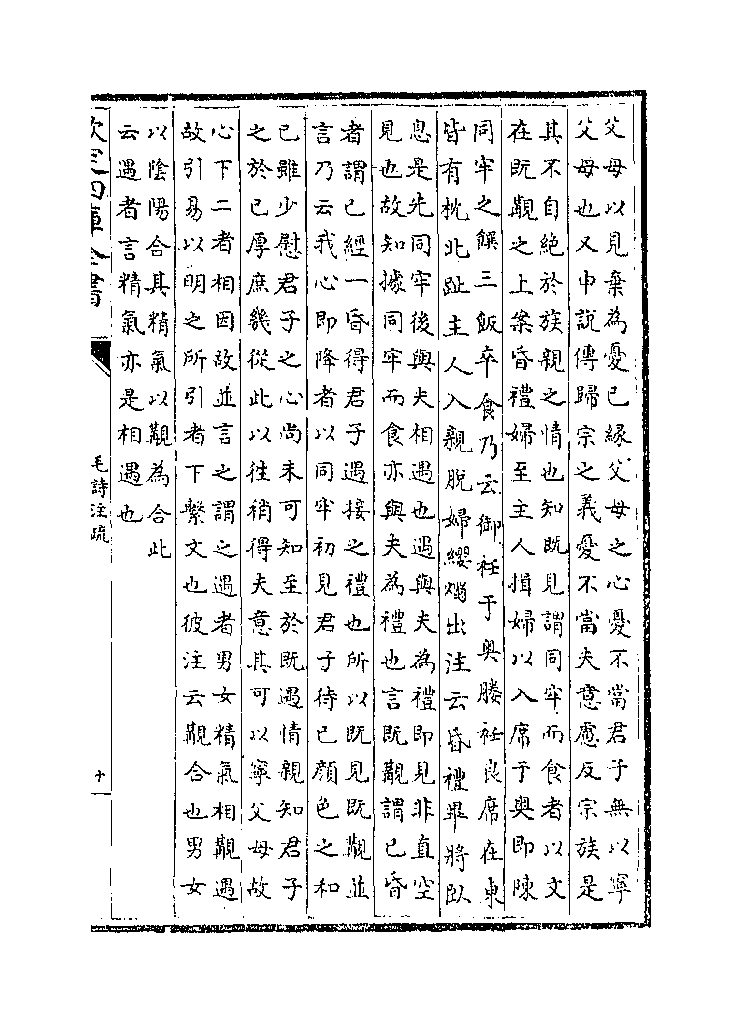 父母以見棄為憂已緣父母之心憂不當君子無以寧
父母也又申說傳歸宗之義憂不當夫意慮反宗族是
其不自絕於族親之情也知既見謂同牢而食者以文
在既覯之上案昏禮婦至主人揖婦以入席于奧即陳
同牢之饌三飯卒食乃云御衽于奧媵衽良席在東
皆有枕北趾主人入親脫婦纓燭出注云昏禮畢將臥
息是先同牢後與夫相遇也遇與夫為禮即見非直空
見也故知據同牢而食亦與夫為禮也言既覯謂已昏
者謂已經一昏得君子遇接之禮也所以既見既覯並
言乃云我心即降者以同牢初見君子待已顏色之和
已雖少慰君子之心尚未可知至於既遇情親知君子
之於已厚庶幾從此以往稍得夫意其可以寧父母故
心下二者相因故並言之謂之遇者男女精氣相覯遇
故引易以明之所引者下繫文也彼注云覯合也男女
以陰陽合其精氣以覯為合此
云遇者言精氣亦是相遇也
欽定四庫全書
毛詩注疏
十